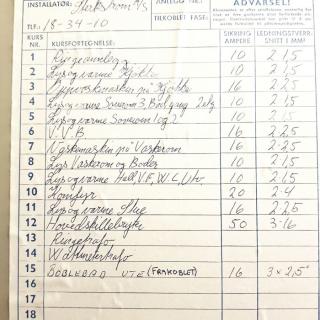 INSTALLATØR: Sterkstrøm A/S
ANLEGG NR.:
ADVARSEL!
TLF.: 18-34-10
TILKOBLET FASE:
KURS NR. KURSFORTEGNELSE: SIKRING AMPERE LEDNINGSTVERR-SNITT I MM²
1 Ringeanlegg 10 2 1,5
2 Lys og varme Kjøkk. 10 2 1,5
3 Oppvaskmaskin på Kjøkk. 16 2 2,5
4 Lys og varme Soverom 3, Bad, gang 2 etg 10 2 1,5
5 Lys og varme Soverom 1 og 2 10 2 1,5
6 V.V.B 16 2 2,5
7 Vaskemaskin på Vaskerom 16 2·2,5
8 Lys Vaskerom og Boder 10 2 1,5
9 Lys og varme Hall, V.F, W.C, Utv. 10 2 1,5
10 Komfyr 20 2·4
11 Lys og varme Stue 16 2 2,5
12 Hovedskillebryter 50 3·16
13 Ringetrafo
14 Wattmetertrafo
15 BOBLEBAD UTE (FRAKOBLET) 16 3 x 2,5"
16
17
18